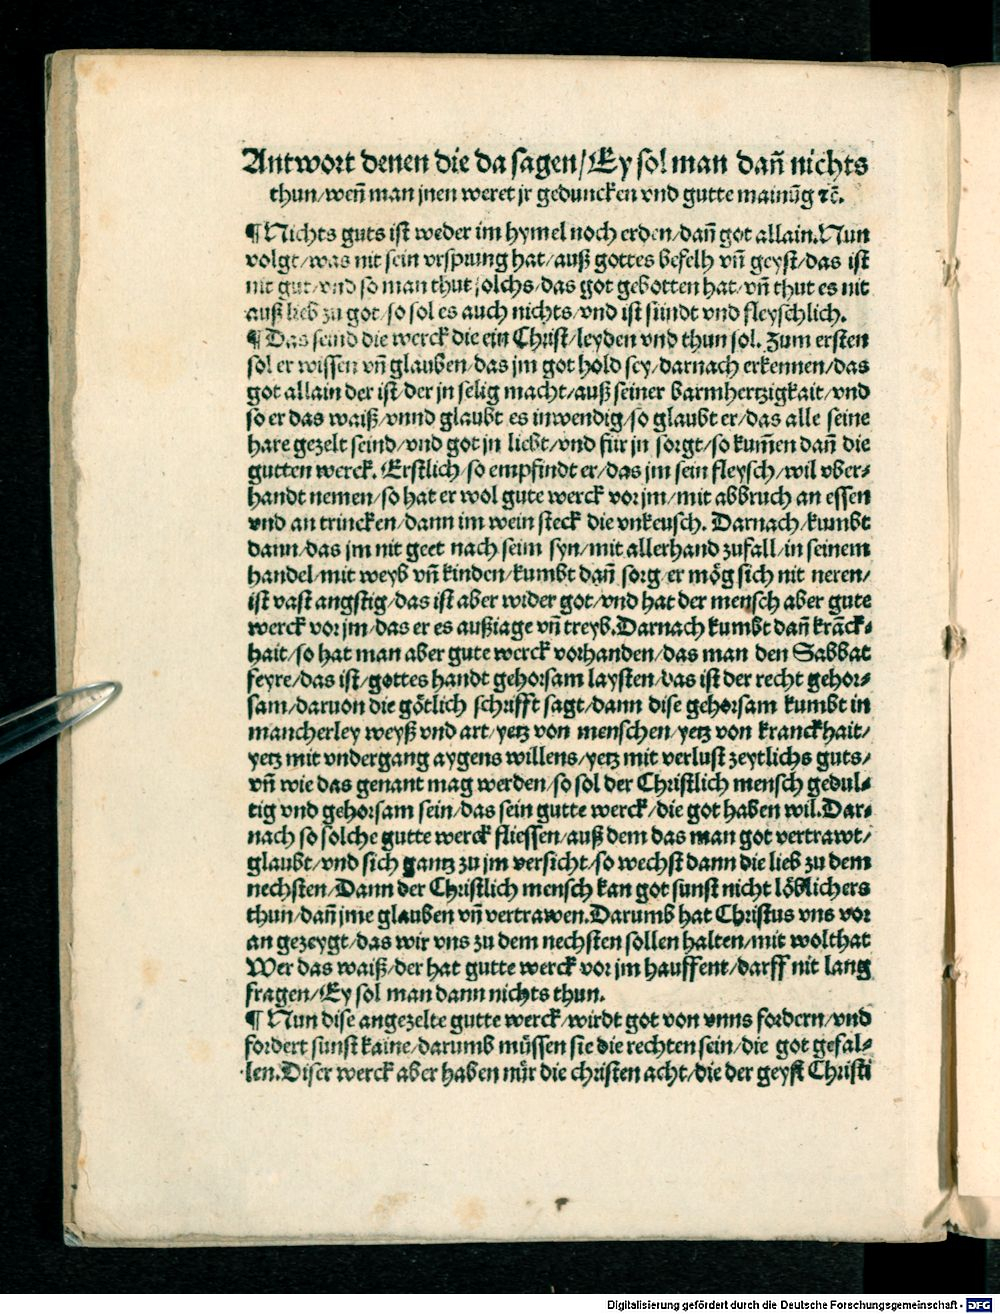 Antwort denen die da sagen/Ey sol man dan̄ nichts
thun/wen̄ man jnen weret jr geduncken vnd gutte mainūg ꝛc̄.
¶ Nichts guts ist weder im hymel noch erden/dan̄ got allain.Nun
volgt/was nit sein vrsprung hat/auß gottes befelh vn̄ geyst/das ist
nit gut/vnd so man thut solchs/das got gebotten hat/vn̄ thut es nit
auß lieb zu got/so sol es auch nichts/vnd ist sündt vnd fleyschlich.
¶ Das seind die werck die ein Christ/leyden vnd thun sol. Zum ersten
sol er wissen vn̄ glauben/das jm got hold sey/darnach erkennen/das
got allain der ist/der jn selig macht/auß seiner barmhertzigkait/vnd
so er das waiß/vnnd glaubt es inwendig/so glaubt er/das alle seine
hare gezelt seind/vnd got jn liebt/vnd für jn sorgt/so kum̄en dan̄ die
gutten werck. Erstlich/so empfindt er/das jm sein fleysch/wil vber⸗
handt nemen/so hat er wol gute werck vor jm/mit abbruch an essen
vnd an trincken/dann im wein steck die vnkeusch. Darnach/kumbt
dann/das jm nit geet nach seim syn/mit allerhand zufall/in seinem
handel/mit weyb vn̄ kinden/kumbt dan̄ sorg/er mög sich nit neren/
ist vast angstig/das ist aber wider got/vnd hat der mensch aber gute
werck vor jm/das er es außiage vn̄ treyb.Darnach kumbt dan̄ krāck⸗
hait/so hat man aber gute werck vorhanden/das man den Sabbat
feyre/das ist/gottes handt gehorsam laysten/das ist der recht gehor⸗
sam/daruon die götlich schrifft sagt/dann dise gehorsam kumbt in
mancherley weyß vnd art/yetz von menschen/yetz von kranckhait/
yetz mit vndergang aygens willens/yetz mit verlust zeytlichs guts/
vn̄ wie das genant mag werden/so sol der Christlich mensch gedul⸗
tig vnd gehorsam sein/das sein gutte werck/die got haben wil.Dar⸗
nach so solche gutte werck fliessen/auß dem das man got vertrawt/
glaubt/vnd sich gantz zu jm versicht/so wechst dann die lieb zu dem
nechsten/Dann der Christlich mensch kan got sunst nicht löblichers
thun/dan̄ jme glauben vn̄ vertrawen.Darumb hat Christus vns vor
an gezeygt/das wir vns zu dem nechsten sollen halten/mit wolthat
Wer das waiß/der hat gutte werck vor jm hauffent/darff nit lang
fragen/Ey sol man dann nichts thun.
¶ Nun dise angezelte gutte werck/wirdt got von vnns fordern/vnd
fordert sunst kaine/darumb müssen sie die rechten sein/die got gefal⸗
len.Diser werck aber haben nür die christen acht/die der geyst Christi
Digitalisierung gefördert durch die Deutsche Forschungsgemeinschaft - DFG